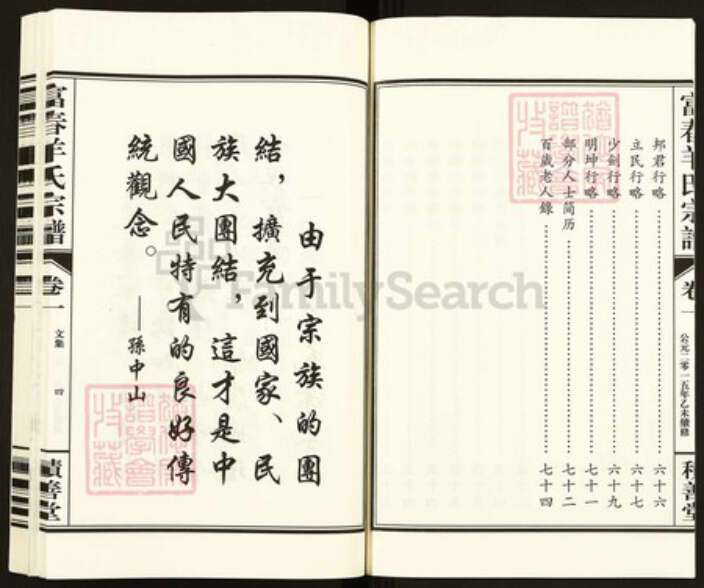 邦君行略 六十六
立民行略 六十七
少劍行略 六十九
明坤行略 七十一
部分人士简历 七十二
百歲老人錄 七十四
公元二零一五年乙未續修
卷一
由于宗族的團
結，擴充到國家、民
族大團結，這才是中
國人民特有的良好傳
統觀念。
——孫中山
富春羊氏宗譜
卷一
文集
四
積善堂
FamilySearch